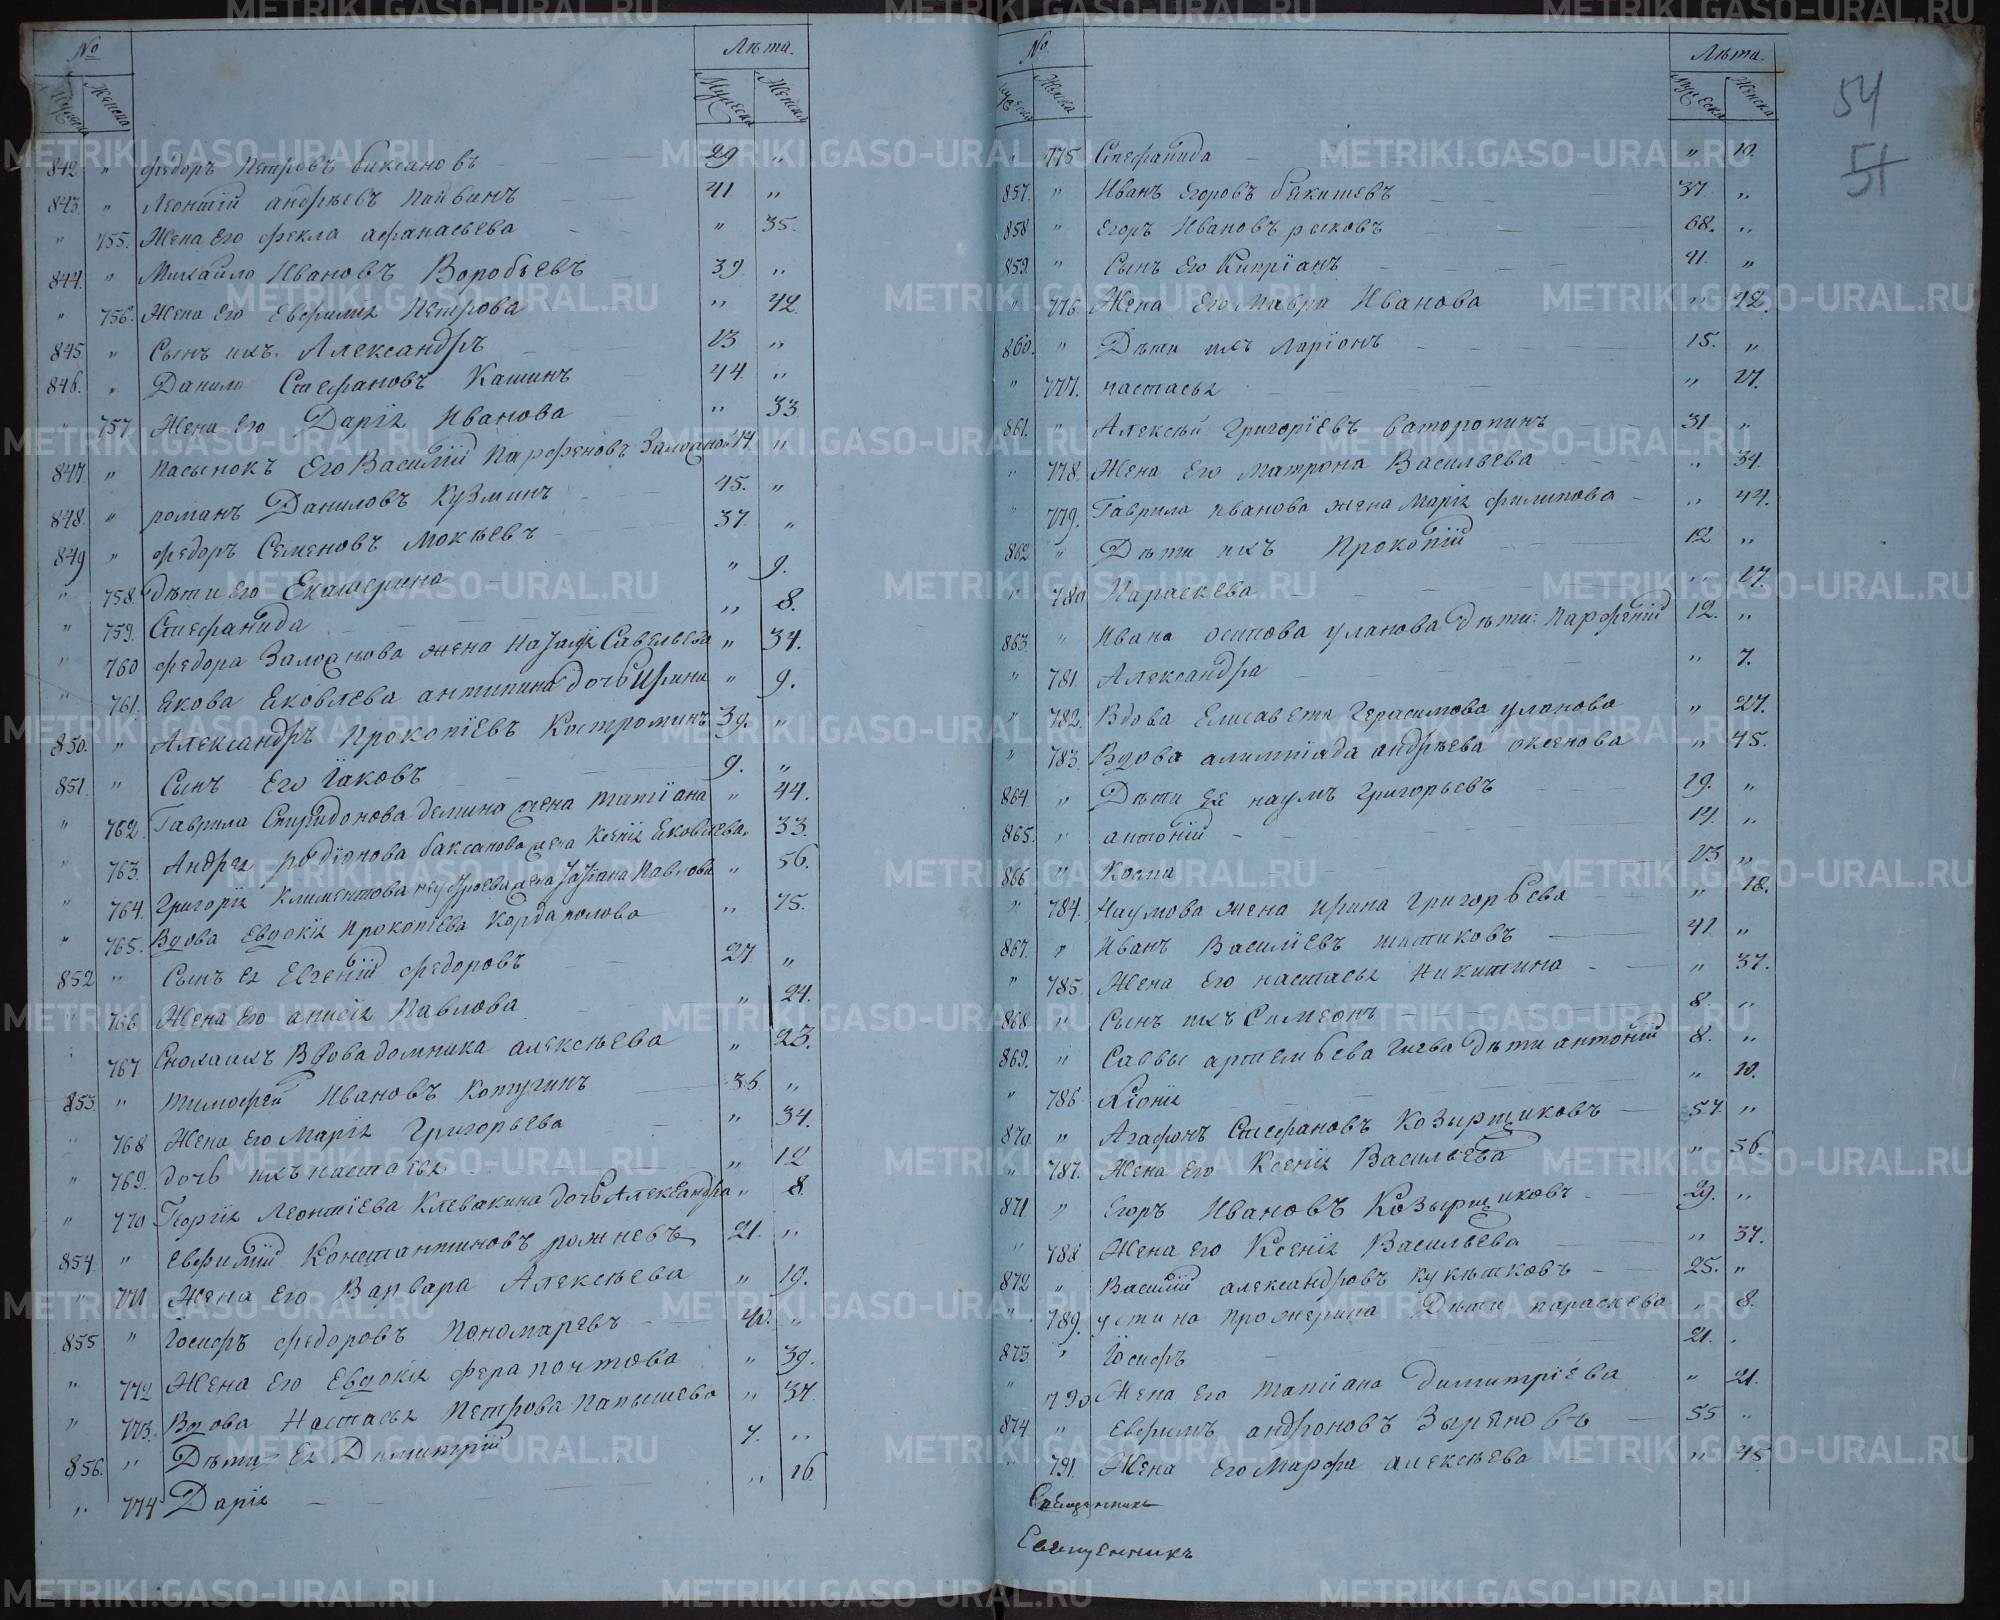 № Лѣта.
Мужеска Женска Мужеска Женска
842 " Федоръ Петровъ баксановъ 29 "
843. " Леонтій андрѣевъ Пайвинъ 41 "
" 755. Жена Его Фекла афанасьева " 35.
844. " Михайло Ивановъ Воробьевъ 39. "
" 756. Жена Его Евфимія Петрова " 42.
845 " Сынъ ихъ. Александръ 13 "
846. " Данило Стефановъ Кашинъ 44 "
" 757 Жена Его Дарія Иванова " 33
847 " пасынокъ Его Василій Парфеновъ 14 "
848. " романъ Даниловъ Кузминъ 45. "
849 " Федоръ Семеновъ Мокѣевъ 37. "
" 758. Дѣти Его Екатерина " 9.
" 759. Стефанида " 8.
" 760 Федора жена Савельева " 34.
" 761. Якова Яковлева антипина дочь Ирина " 9.
850. " Александръ Прокопіевъ Костроминъ 39. "
851. " Сынъ Его Іаковъ 9. "
" 762. Гаврила Спиридонова демина жена татіана " 44.
" 763. Андрея родіонова баксанова жена Ксенія Яковлева. 33.
" 764. Григорія Климентова жена Павлова " 56.
" 765. Вдова Евдокія Прокопіева Кордаполова " 75.
852 " Сынъ Ея Евгеній Федоровъ 27 "
766 Жена Его анисія Павлова " 24.
767 Сноха ихъ Вдова домника алексѣева " 23.
853. " тимофей Ивановъ Котугинъ 36. "
" 768 Жена Его Марія Григорьева " 34.
" 769. дочь ихъ настасья " 12
" 770 Георгія Леонтіева Клевакина дочь Александра " 8.
854. " Евфимій Константиновъ рожневъ 21. "
" 771 Жена Его Варвара Алексѣева " 19.
855 " Іосифъ Федоровъ Пономаревъ 40. "
" 772 Жена Его Евдокія Ферапонтова " 39.
" 773. Вдова Настасья Петрова Папышева " 37.
856. " Дѣти Ея Димитрій 7. "
" 774 Дарія " 16
№ Лѣта.
Мужеска Женска Мужеска Женска
54
51
" 775 Стефанида " 19.
857. " Иванъ Егоровъ бякишевъ 37. "
858 " Егоръ Ивановъ рычковъ 68. "
859. " Сынъ Его Кипріанъ 41. "
" 776. Жена Его Мавра Иванова " 42.
860. " Дѣти ихъ Ларіонъ 15. "
" 777. настасья " 17.
861. " Алексѣй Григоріевъ ваторопинъ 31. "
" 778. Жена Его матрона Васильева " 34.
" 779. Гаврила иванова жена марія филипова " 44.
862 " Дѣти ихъ Прокопій 12 "
" 780 Параскева " 17.
863. " Ивана осипова уланова дѣти: Парфеній 12. "
" 781. Александра " 7.
" 782. Вдова Елисавета Герасимова уланова " 27.
" 783. Вдова алимпіада андрѣева аксенова " 45.
864 " Дѣти Ея наумъ Григорьевъ 19. "
865. " антоній 17. "
866 " Косма 13 "
" 784. Наумова жена ирина Григорьева " 18.
867. " Иванъ Василіевъ татиковъ 41. "
" 785. Жена Его настасья Никитина " 37.
868. " Сынъ ихъ Симеонъ 8. "
869. " Саввы артемьева дѣти антоній 8. "
" 786 Ксенія " 10.
870. " Агафонъ Стефановъ Козырщиковъ 57. "
" 787. Жена Его Ксенія Васильева " 56.
871 " Егоръ Ивановъ Козырщиковъ 29. "
" 788 Жена Его Ксенія Васильева " 37.
872 " Василій александровъ кукѣтковъ 25. "
" 789. устина Прожерина Дѣти параскева " 8.
873 " Іосифъ 21. "
" 790 Жена Его татіана димитріева " 21.
874. " Евфимъ андроновъ Зыряновъ 55 "
" 791. Жена Его Марфа алексѣева " 45
Священникъ
Священникъ